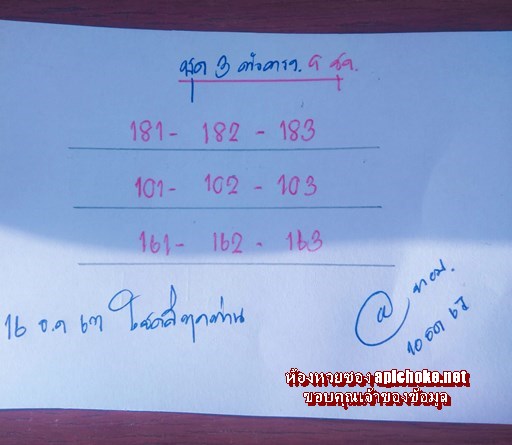 ชุด 3 ตัวตรง. 9 ชุด.
181 - 182 - 183
101 - 102 - 103
161 - 162 - 163
16 ธ.ค 67 โชคดีทุกท่าน
@
10 ธค 67
ห้องหวยซอง apichoke.net
ขอบคุณเจ้าของข้อมูล